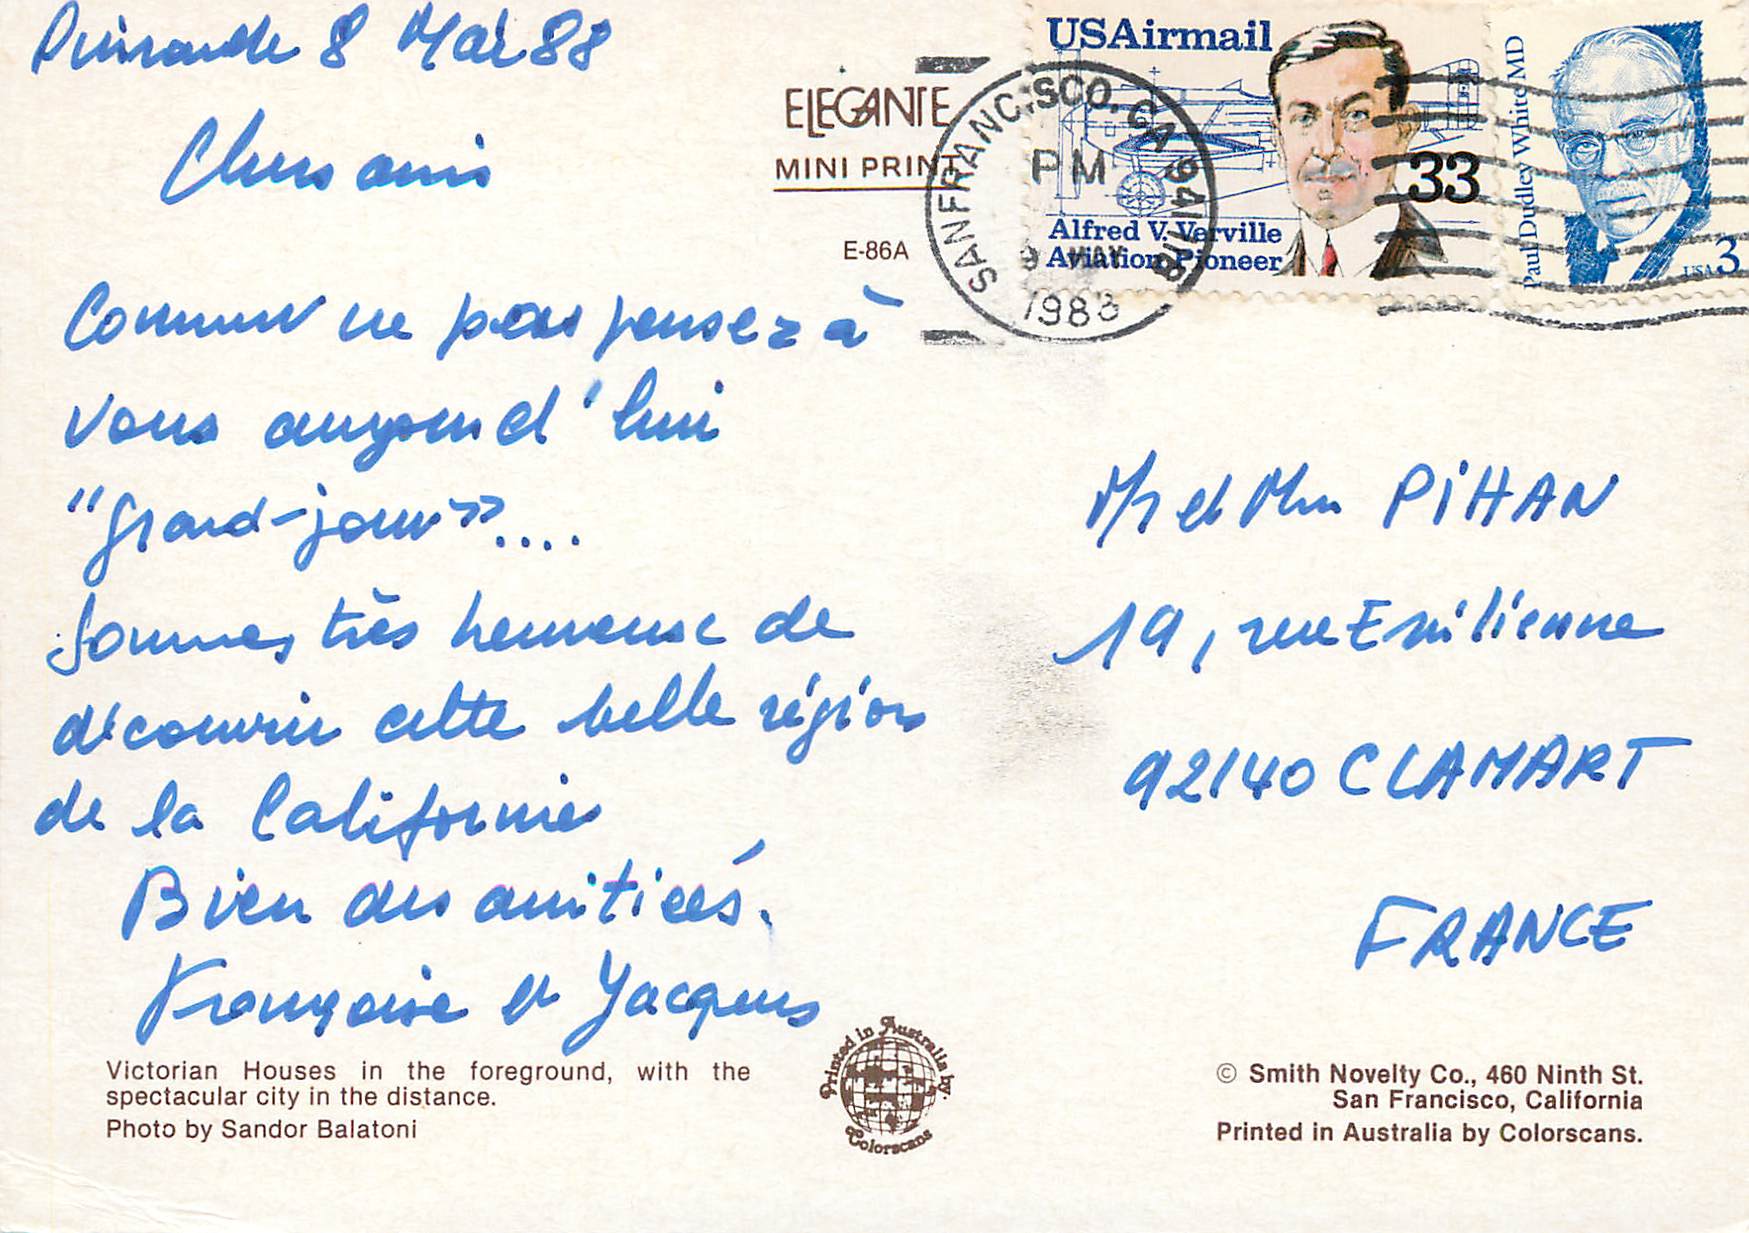 Dimanche 8 Mai 88
Chers amis
Comment ne pas pensez à
vous aujourd'hui
"grand-jour"....
Sommes très heureuse de
découvrir cette belle région
de la Californie
Bien des amitiées.
Françoise et Jacques
ELEGANTE
MINI PRINT
E-86A
SAN FRANCISCO, CA 941
PM
9 MAY
1988
USAirmail
33
Alfred V. Verville
Aviation Pioneer
Paul Dudley White MD
USA 3
Mr et Mme PiHAN
19, rue Emilienne
92140 CLAMART
FRANCE
Victorian Houses in the foreground, with the
spectacular city in the distance.
Photo by Sandor Balatoni
Printed in Australia by
Colorscans
© Smith Novelty Co., 460 Ninth St.
San Francisco, California
Printed in Australia by Colorscans.